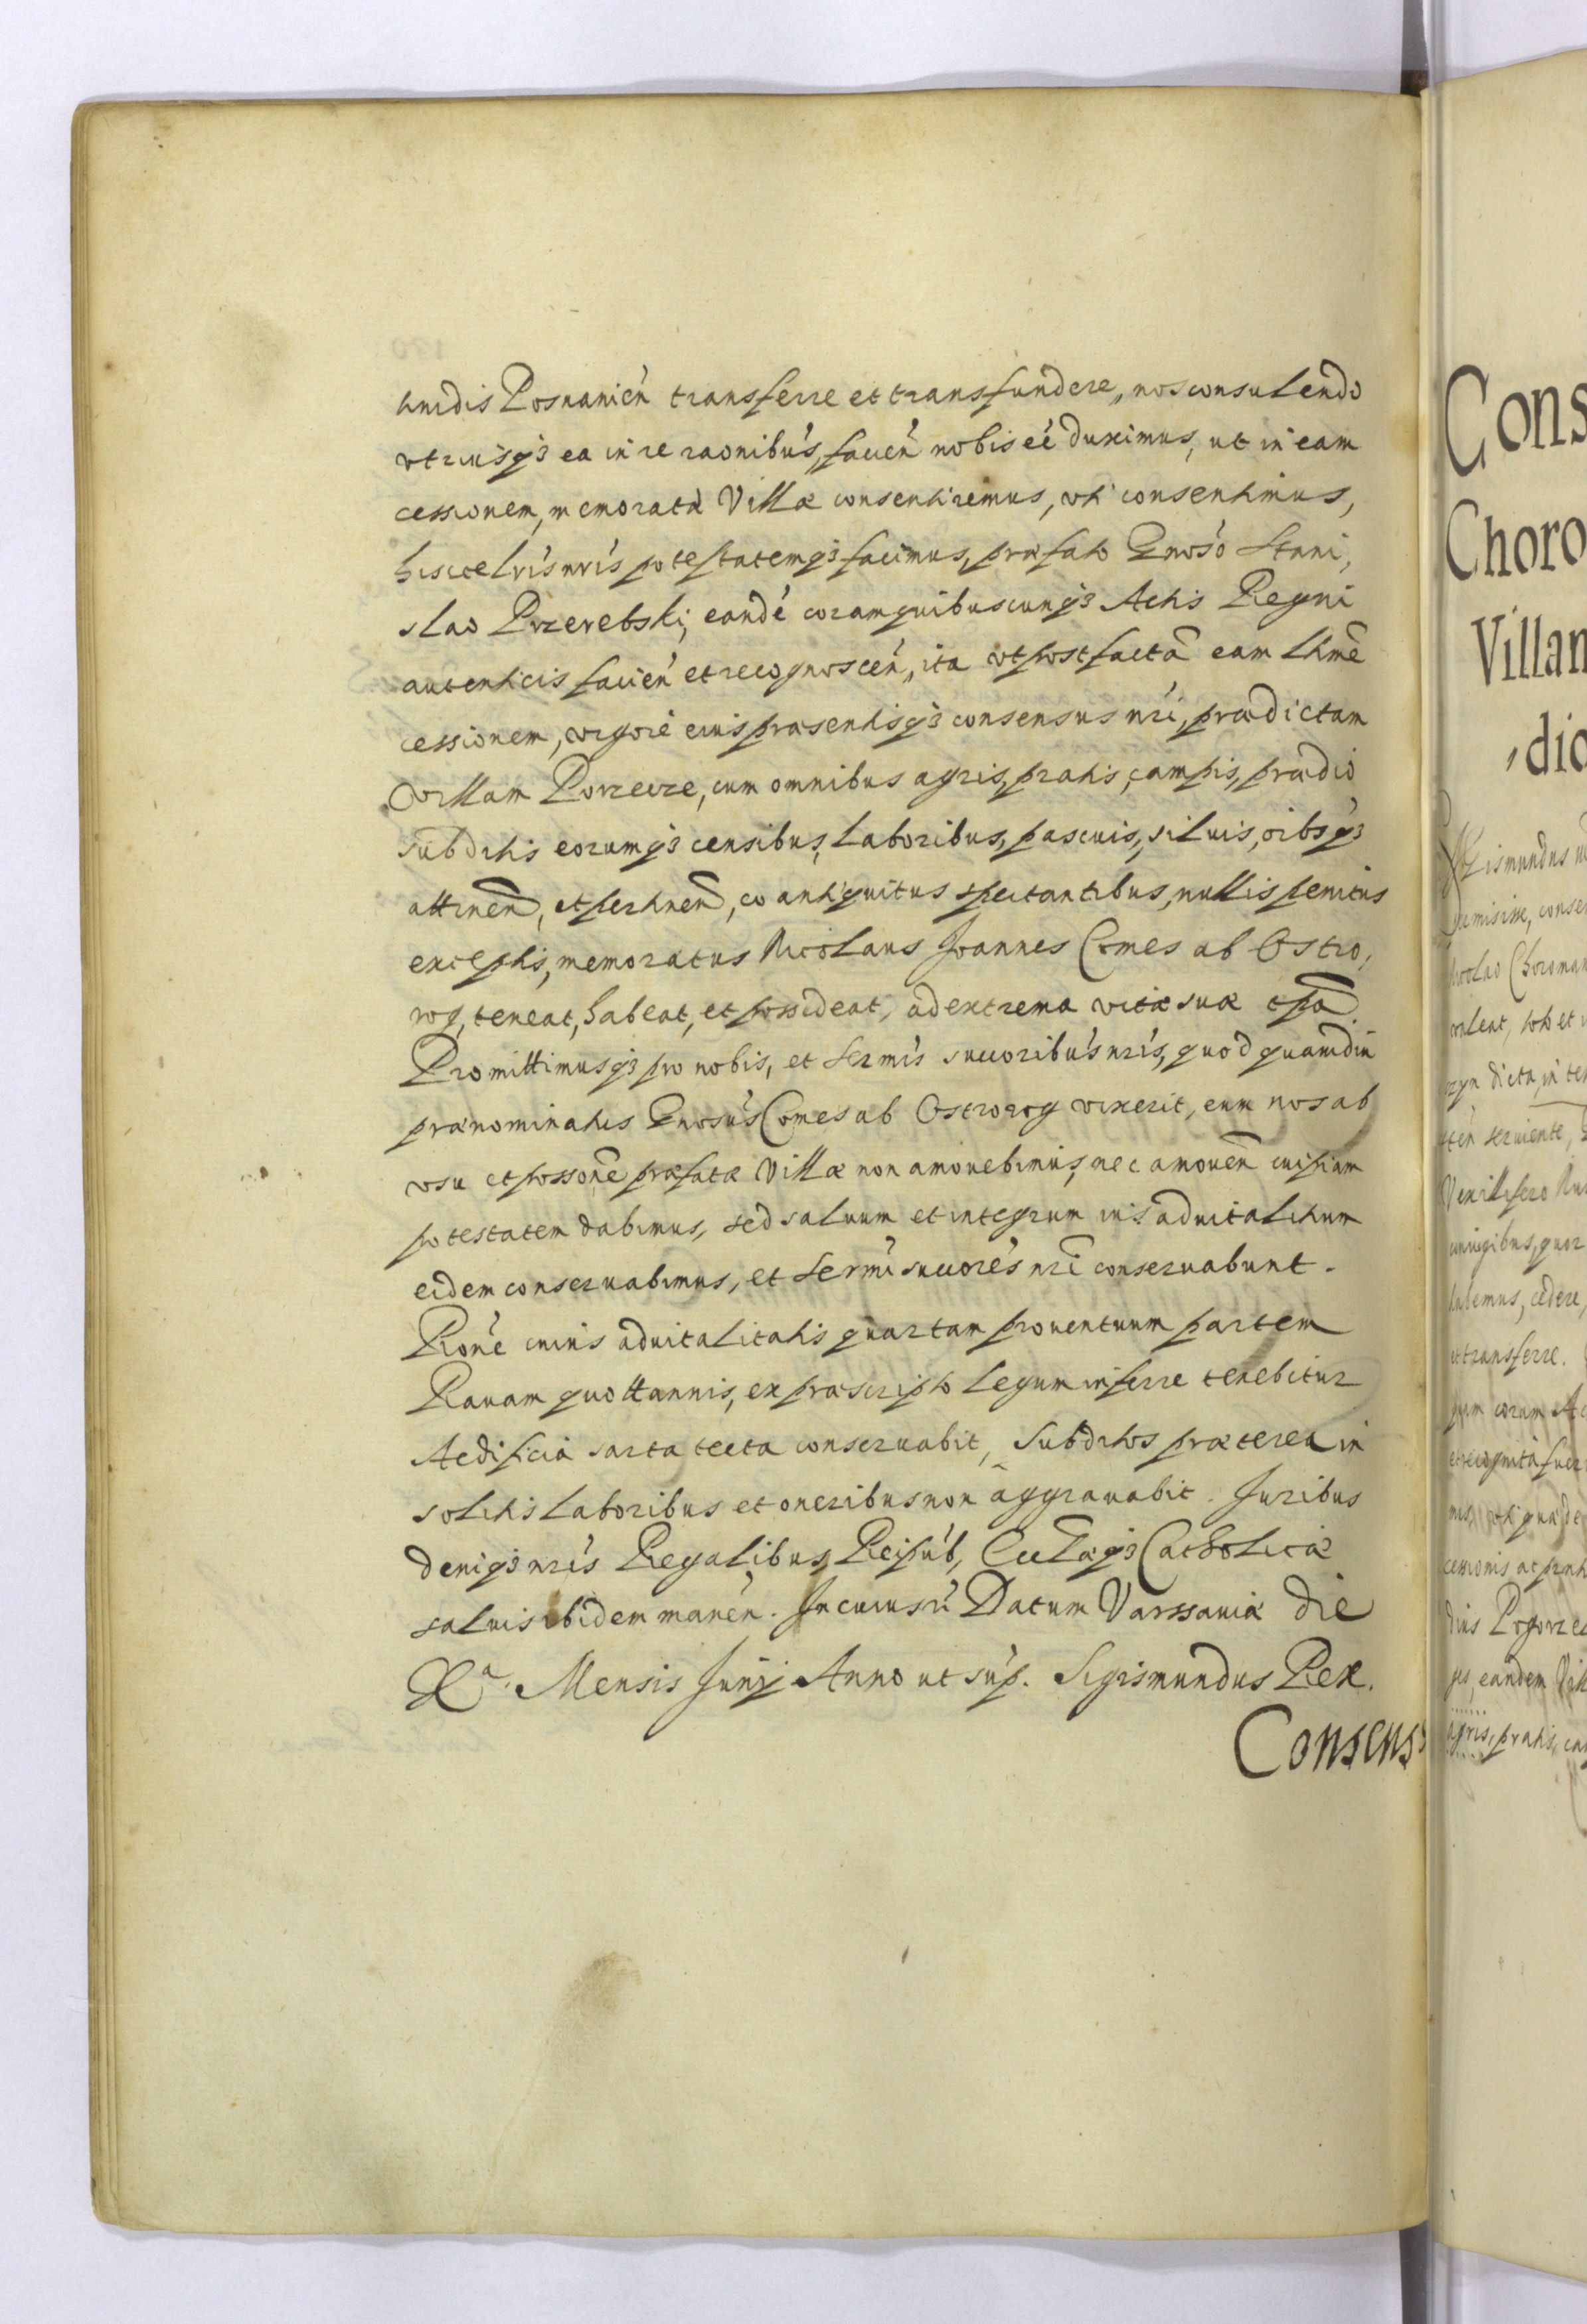 tunidis Posnanień transferre et transfundere, nos consulendo
utriusq3 ea in re raonibús, facień nobis eé duximus, ut in eam
cessionem, memoratæ Villæ consentiremus, uti consentimus,
hisce lrís nrís potestatemq3 facimus, præfato Gnoso Stani,
slao Przerebski, eandé coram quibuscunq3 Actis Regni
autenticis facień et recognoscen, ita ut post factã eam ltimẽ
cessionem, vigore eius præsentisq3 consensus nri, prædictam
Villam Porzecze, cum omnibus agris, pratis, campis, prædio
subditis eorumq3 censibus, laboribus, pascuis, siluis, oibsq3
attineñ, et pertineñ, eo antiquitus spectantibus, nullis penitus
exceptis, memoratus Nicolaus Joannes Comes ab Ostro,
rog, teneat, habeat, et possideat, ad extrema vitæ suæ tpã
Promittimusq3 pro nobis, et Sermis succoribús nris, quod quamdiu
prænominatus Gnosus Comes ab Ostrorog vixerit, eum nos ab
usu et possoñe præfatæ Villæ non amouebimus, nec amoueñ cuipiam
potestatem dabimus, sed saluum et integrum ius aduitalitium
eidem conseruabimus, et Sermi succores nri conseruabunt.
Rone cuius aduitalitatis quartam prouentuum partem
Rauam quottannis, ex præscripto legum inferre tenebitur
Aedificia sarta tecta conseruabit, Subditos præterea in
solitis laboribus et oneribus non aggrauabit. Juribus
deniq3 nris Regalibus, Reipub, Ecclæq3 Catholicæ
saluis ibidem manen. In cuius ri Datum Varssauiæ die
Xa. Mensis Junij Anno ut sup. Sigismundus Rex.
Consens9
Cons
Choro
Villam
dic
Gismundus
misisse, conse
colao Choroman
valent, toto et
dicta, in te
ten seruiente,
Vexillifero
coniugibus, quor
habemus, cedere,
et transferre.
coram Ac
et recognita fuer
cessionis ac
eandem Vill
agris, pratis, ca